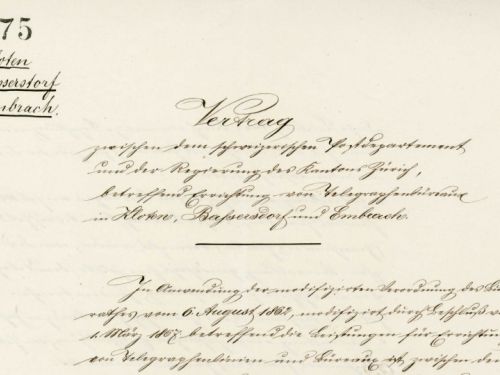 75
oten
sserstorf
mbrach.
Vertrag
zwischen dem schweizerischen Postdepartement
und der Regierung des Kantons Zürich,
betreffend Errichtung von Telegraphenbüreaux
in Kloten, Bassersdorf und Embrach.
In Anwendung der modifizirten Verordnung des Bun
rathes vom 6. August 1862, modifizirt durch Beschluß v
1. März 1867 betreffend die Leistungen für Errichtu
von Telegraphenlinien und Büreaux ist zwischen dem